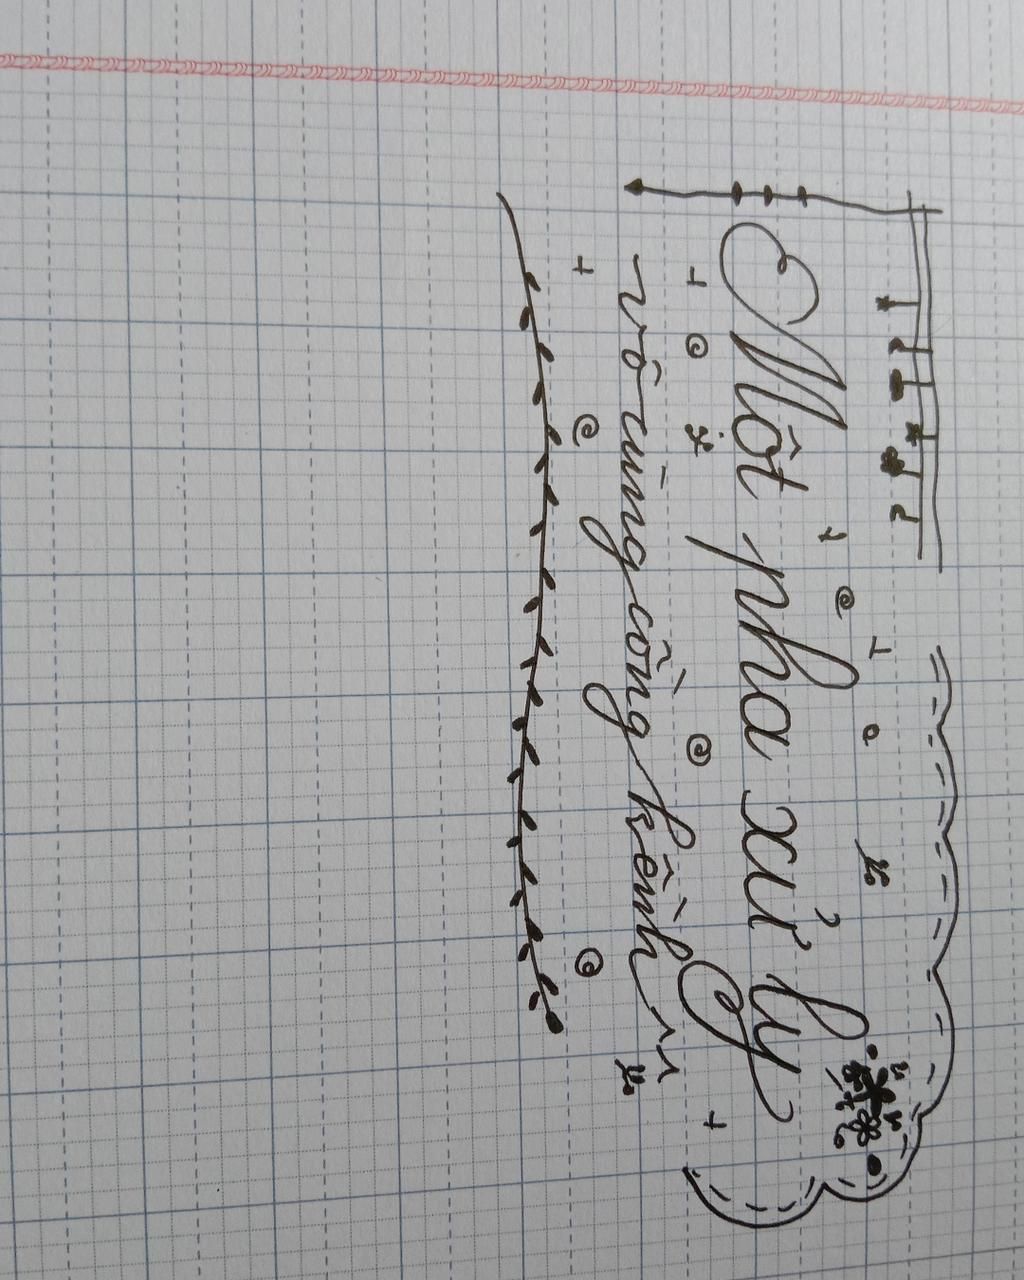 Một pha xử ly
vô cùng cồng kềnh